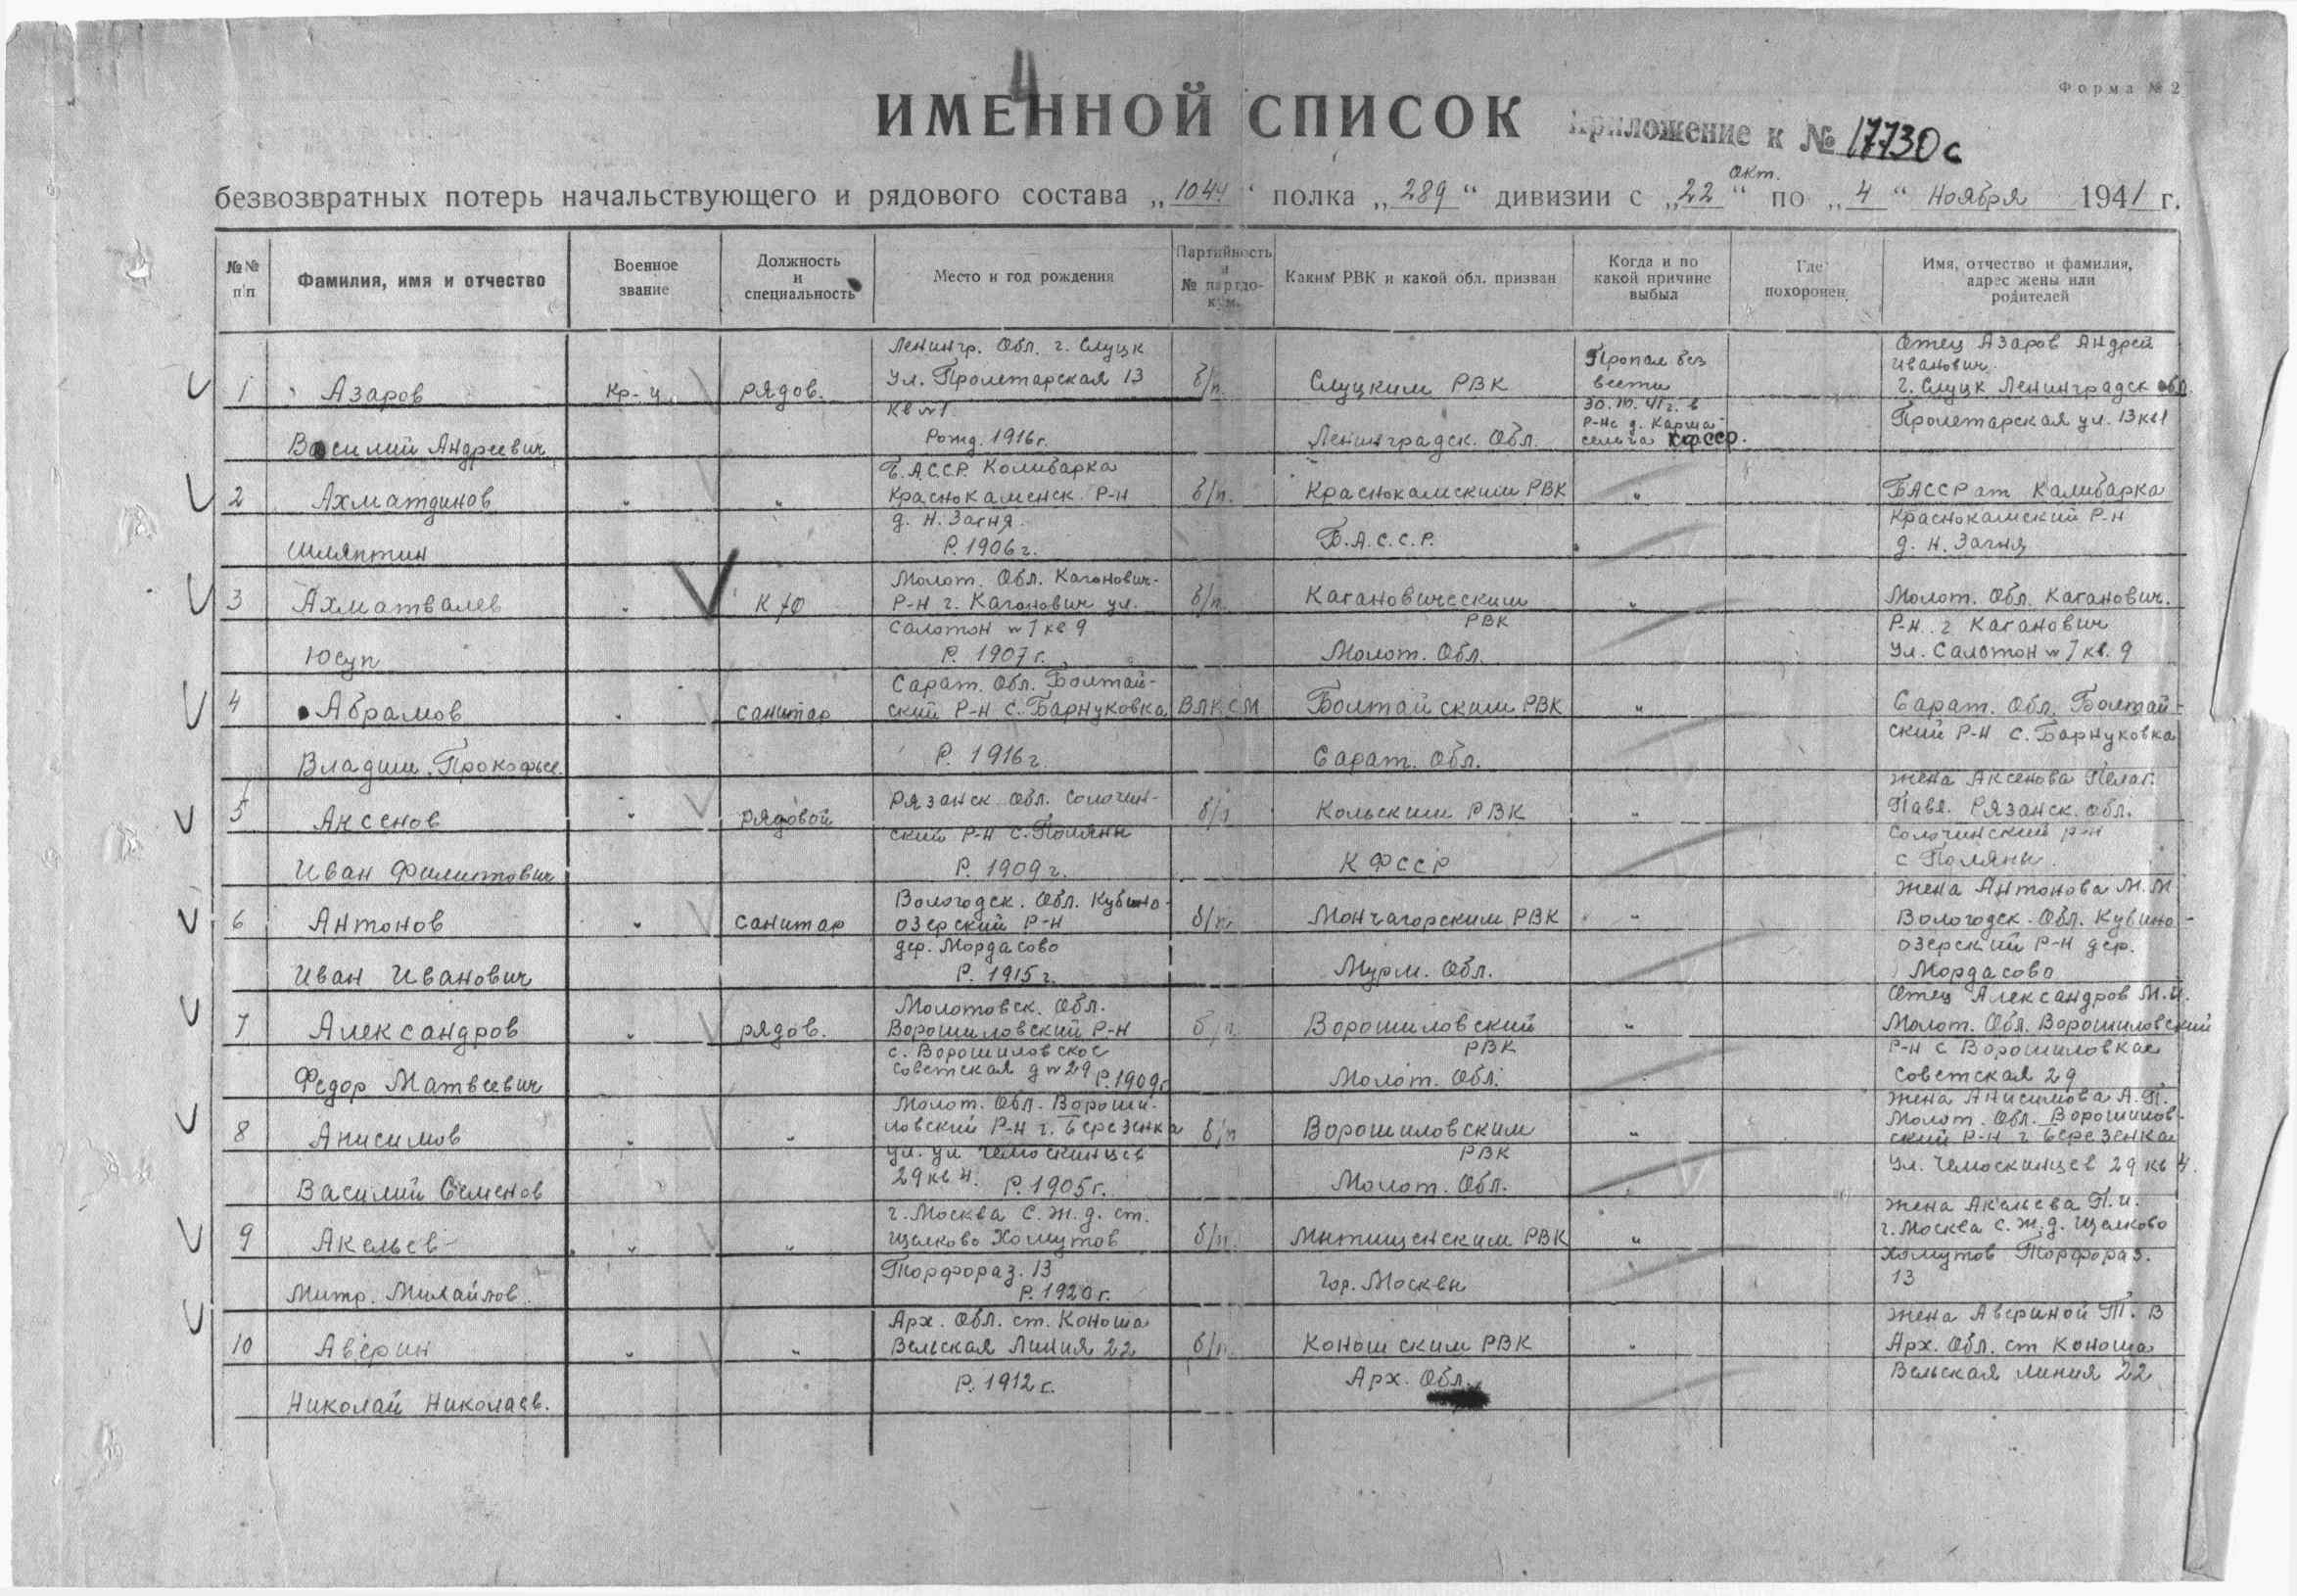 4
Форма № 2
ИМЕННОЙ СПИСОК
Приложение к № 17730с
безвозвратных потерь начальствующего и рядового состава „1044“ полка „289“ дивизии с „22“ окт. по „4“ Ноября 1941 г.
№№ п/п
Фамилия, имя и отчество
Военное звание
Должность и специальность
Место и год рождения
Партийность и № партдокум.
Каким РВК и какой обл. призван
Когда и по какой причине выбыл
Где похоронен
Имя, отчество и фамилия, адрес жены или родителей
1
Азаров
Василий Андреевич
Кр-ц
рядов.
Ленингр. Обл. г. Слуцк
Ул. Пролетарская 13
Кв №1
Рожд. 1916г.
б/п.
Слуцким РВК
Ленинградск. Обл.
Пропал без
вести
30.10.41г. в
Р-не д. Карма
сельга КФССР.
Отец Азаров Андрей
Иванович
г. Слуцк Ленинградск обл.
Пролетарская ул. 13 кв 1
2
Ахматдинов
Шмяптин
"
"
Б.А.С.С.Р. Калибарка
Краснокаменск. Р-н
д. Н. Загня.
Р. 1906г.
б/п.
Краснокамским РВК
Б.А.С.С.Р.
"
БАССР ст Калибарка
Краснокамский Р-н
д. Н. Загня
3
Ахматвалев
Юсуп
"
К/О
Молот. Обл. Каганович-
Р-н г. Каганович ул.
Салотон № 7 кв 9
Р. 1907г.
б/п.
Кагановическим
РВК
Молот. Обл.
"
Молот. Обл. Каганович.
Р-н. г Каганович
Ул. Салотон № 7 кв. 9
4
Абрамов
Владим. Прокофье.
"
санитар
Сарат. Обл. Болтай-
ский Р-н С. Барнуковка
Р. 1916г.
ВЛКСМ
Болтайским РВК
Сарат. Обл.
"
Сарат. Обл. Болтай-
ский Р-н С. Барнуковка
5
Аксенов
Иван Филиппович
"
рядовой
Рязанск. Обл. Солочин-
ский Р-н С. Поляны
Р. 1909г.
б/п
Кольским РВК
КФССР
"
Жена Аксенова Пелаг.
Павл. Рязанск. Обл.
Солочинский р-н
с Поляны.
6
Антонов
Иван Иванович
"
санитар
Вологодск. Обл. Кубино-
озерский Р-н
дер. Мордасово
Р. 1915г.
б/п.
Мончагорским РВК
Мурм. Обл.
"
Жена Антонова М.М
Вологодск. Обл. Кубино-
озерский Р-н дер.
Мордасово
7
Александров
Федор Матвеевич
"
рядов.
Молотовск. Обл.
Ворошиловский Р-н
с. Ворошиловское
Советская д № 29 Р. 1909г
б/п.
Ворошиловский
РВК
Молот. Обл.
"
Отец Александров М.И.
Молот. Обл. Ворошиловский
Р-н с Ворошиловкае
Советская 29
8
Анисимов
Василий Семенов
"
"
Молот. Обл. Вороши-
ловский Р-н г. Березенка
ул. ул Чемоскинцев
29 кв 4. Р. 1905г.
б/п
Ворошиловским
РВК
Молот. Обл.
"
Жена Анисимова А.П.
Молот. Обл. Ворошилов-
ский Р-н г Березенка
Ул. Чемоскинцев 29 кв 4.
9
Акельев
Митр. Михайлов.
"
"
г. Москва С.Ж.д. ст.
Щелково Хомутов
Торфораз. 13
Р. 1920г.
б/п.
Мытищенским РВК
Гор. Москвы
"
Жена Акельева П.И.
г. Москва С.Ж.д. Щелково
Хомутов Торфораз.
13
10
Аверин
Николай Николаев.
"
"
Арх. Обл. ст. Коноша
Вельская Линия 22
Р. 1912г.
б/п.
Коношским РВК
Арх. Обл.
"
Жена Авериной Т.В
Арх. Обл. ст Коноша
Вельская линия 22